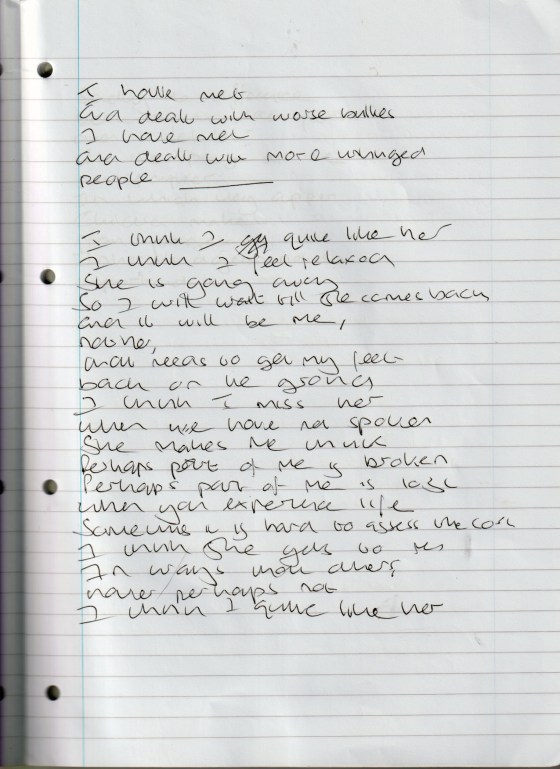 I have met
and dealt with worse bullies
I have met
and dealt with more winged
people

I think I quite like her
I think I feel relaxed
She is going away
So I will wait till she comes back
and it will be me,
not her,
that needs to get my feet
back on the ground
I think I miss her
when we have not spoken
She makes me think
Perhaps part of me is broken
Perhaps part of me is lost
when you experience life
Sometimes it is hard to assess the cost
I think she gets to me
In ways that others,
have perhaps not
I think I quite like her